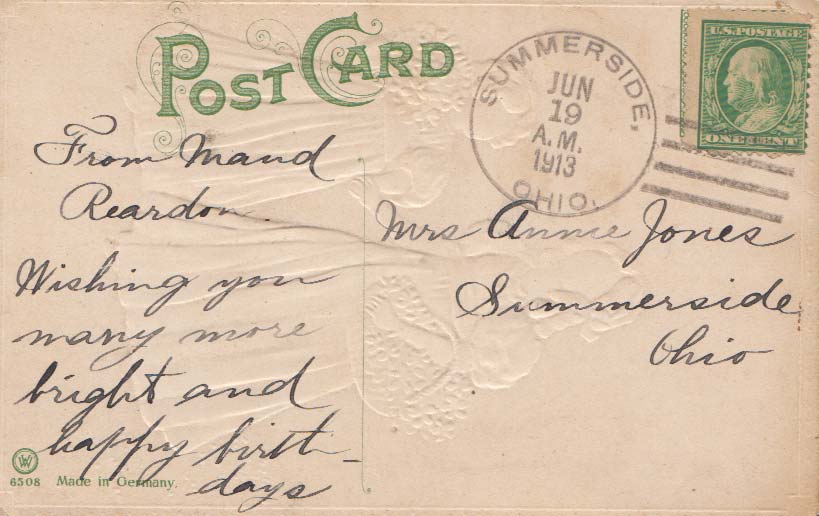 POST CARD
SUMMERSIDE,
JUN
19
A.M.
1913
OHIO.
U.S. POSTAGE
ONE CENT
From Maud
Reardon
Wishing you
many more
bright and
happy birth-
days
Mrs Annie Jones
Summerside
Ohio
6508 Made in Germany.